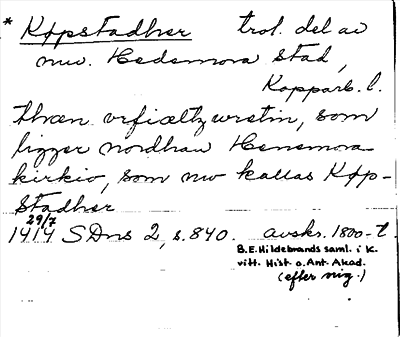 * Køpstadher trol. del av
nuv. Hedemora stad,
Kopparb. l.
thræn vrfiæltzwrstin, som
ligger nordhan Henemora
kirkio, som nw kallas Køp-
stadher
29/7
1414 SDns 2, s. 840. avskr. 1800-t.
B.E. Hildebrands saml. i K.
vitt. Hist. o. Ant. Akad.
(efter sig.)